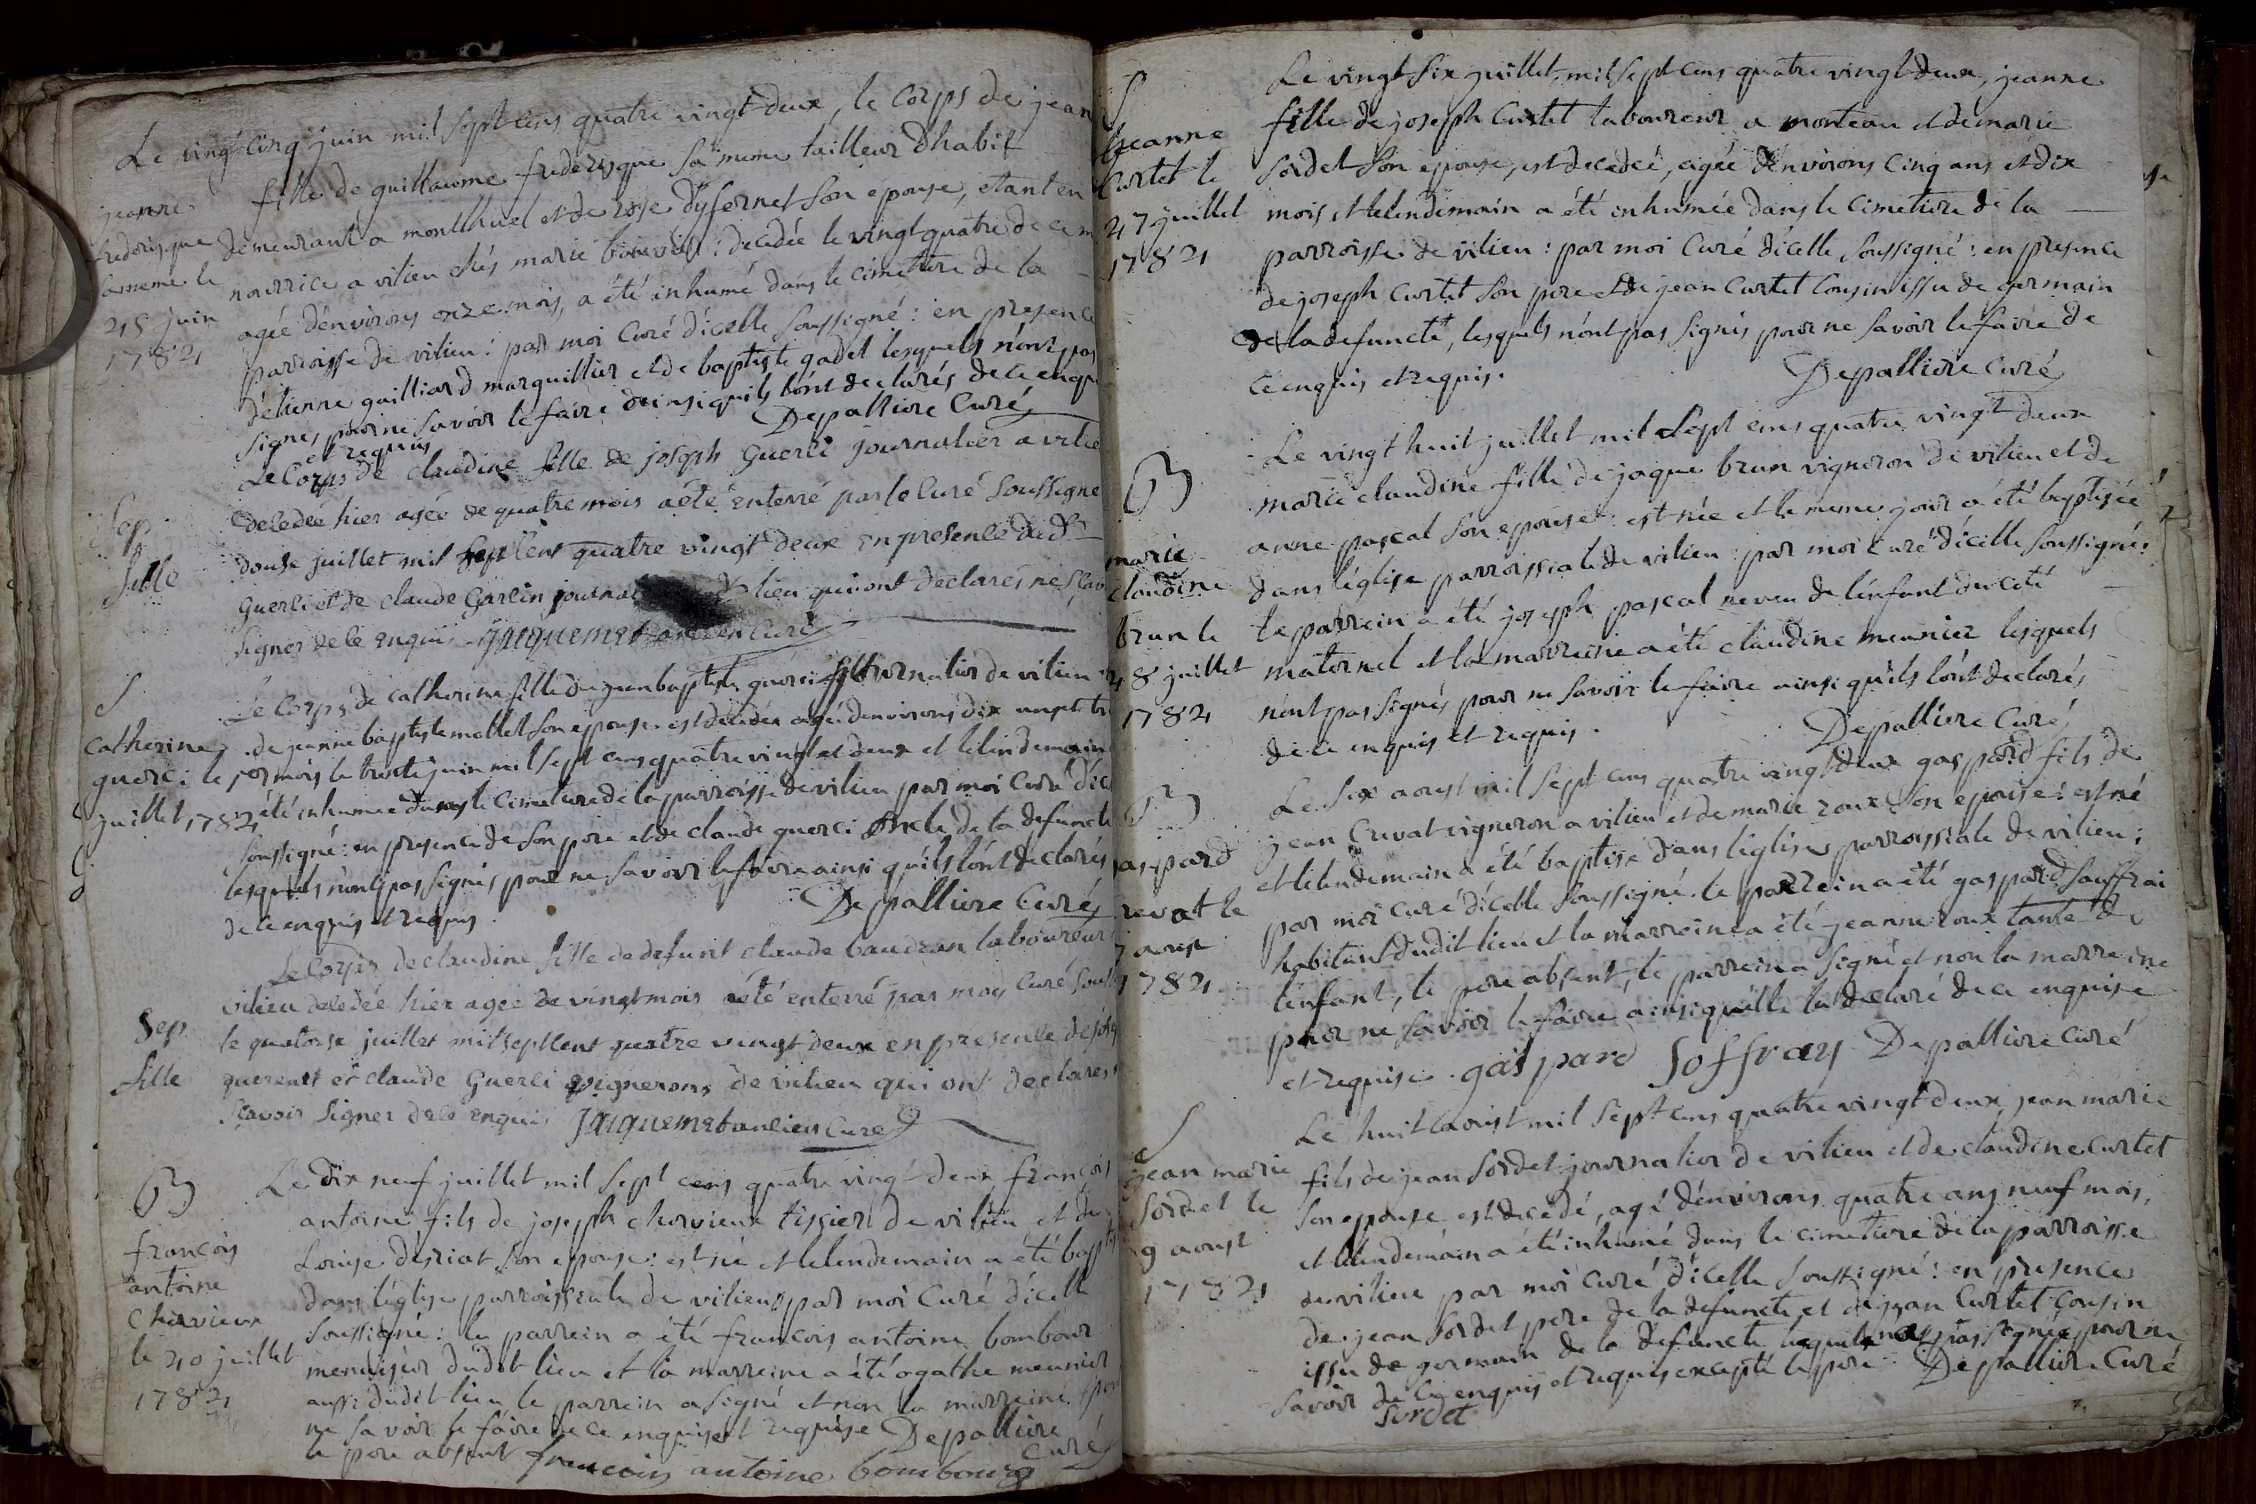 Le vingt cinq juin mil sept cens quatre vingt deux, le corps de jean
jeanne
frederisque
lameme le
25 juin
1782
fille de guillaume frederisque la meme tailleur dhabit
demeurant a monthuel et de rose dufernet son epouse, etant en
nourrice a vilieu chés marie bouvier : decedée le vingt quatre de ce m
agée d'environs onze mois, a été inhumé dans le cimetiere de la
parroisse de vilieu : par moi Curé d'icelle soussigné : en presence
d'etienne guilliard marguillier et de baptiste gadel lesquels n'ont pas
signés pour ne savoir le faire ainsi quils l'ont declarés de ce enqui
et requis
Depalliere Curé
Sep.
fille
Le Corps de claudine fille de joseph Guerci journalier a vilie
decedée hier agée de quatre mois a été enterré par le Curé soussigne
douse juillet mil sept cent quatre vingt deux en presence dud.
Guerci et de claude Garein journal lieu qui ont declarés ne scav
signer de ce enquis Jacquemet ancien Curé
S
Catherine
guerci le
juillet 1782
Le Corps de catherine fille de jean baptiste guerci journalier de vilieu
de jeanne baptiste mollet son epouse est decedée agé denvirons dix
mois le trente juin mil sept cens quatre vingt et deux et lelendemain
été inhumée dans le cimetiere de la parroisse de vilieu par moi Curé dice
soussigné : en presence de son pere et de claude guerci oncle de la defuncte
lesquels n'ont pas signés pour ne savoir le faire ainsi qu'ils l'ont declarés
de ce enquis et requis
Depalliere Curé
Sep
fille
Le Corps de claudine fille de defunt claude baudran laboureur
vilieu decedée hier agée de vingt mois a été enterré par moy Curé sous
le quatorse juillet mil sept cent quatre vingt deux en presence de jos
et claude Guerci vignerons de vilieu qui ont declarés
scavoir signer de ce enquis Jacquemet ancien Curé
B
francois
antoine
Chervieux
le 20 juillet
1782
Le dix neuf juillet mil sept cens quatre vingt deux françois
antoine fils de joseph chervieux tissier de vilieu et de
Louise desriat son epouse : est né et lelendemain a été bapt
dans l'église parroissiale de vilieu par moi Curé d'icelle
soussigné : le parrein a été francois antoine bombour
menuisier dudit lieu et la marreine a été agathe meunier
aussi dudit lieu le parrein a signé et non la marreine pour
ne savoir le faire de ce enquise et requise Depalliere
Curé
le pere absent francois antoine bombourg
S
jeanne
Curtet le
27 juillet
1782
Le vingt six juillet mil sept cens quatre vingt deux, jeanne
fille de joseph Curtet laboureur a monteau et de marie
Sordet son epouse, est decedeé, agée d'environs cinq ans et dix
mois et lelendemain a été inhumée dans le cimetiere de la
parroisse de vilieu : par moi Curé d'icelle soussigné : en presence
de joseph Curtet son pere et de jean Curtet Cousin issu de germain
de la defuncte, lesquels n'ont pas signés pour ne savoir le faire de
ce enquis et requis.
Depalliere Curé
B
marie
claudine
brun le
28 juillet
1782
Le vingt huit juillet mil sept cens quatre vingt deux
marie claudine fille de jaque brun vigneron de vilieu et de
anne pascal son epouse : est née et le meme jour a été baptisée
dans l'église parroissiale de vilieu : par moi Curé d'icelle soussigné :
le parrein a été joseph pascal neveu de l'enfant du coté
maternel et la marreine a été claudine meunier lesquels
n'ont pas signés pour ne savoir le faire ainsi qu'ils l'ont declarés
de ce enquis et requis.
Depalliere Curé
B
aspard
revat le
7 aoust
1782
Le six aoust mil sept cens quatre vingt deux gaspard fils de
jean Crevat vigneron a vilieu et de marie roux son epouse : est né
et lelendemain a été baptise dans l'église parroissiale de vilieu :
par moi curé d'icelle soussigné le parrein a été gaspard souffrai
habitant dudit lieu et la marreine a été jeanne roux tante de
l'enfant, le pere absent, le parrein a signé et non la marreine
pour ne savoir le faire ainsi quelle la declaré de ce enquise
et requise. gaspard Soffray Depalliere Curé
S
jean marie
Sordet le
9 aoust
1782
Le huit aoust mil sept cens quatre vingt deux jean marie
fils de jean Sordet journalier de vilieu et de claudine Curtet
son epouse est decédé, agé d'environs quatre ans neuf mois,
et lelendemain a été inhumé dans le cimetiere de la parroisse
de vilieu par moi Curé d'icelle soussigné : en presence
de jean Sordet pere de la defuncte et de jean Curtet Cousin
issu de germain de la defuncte lequels n'ont pas signés pour ne
savoir de ce enquis et requis excepté le pere : Depalliere Curé
Sordet